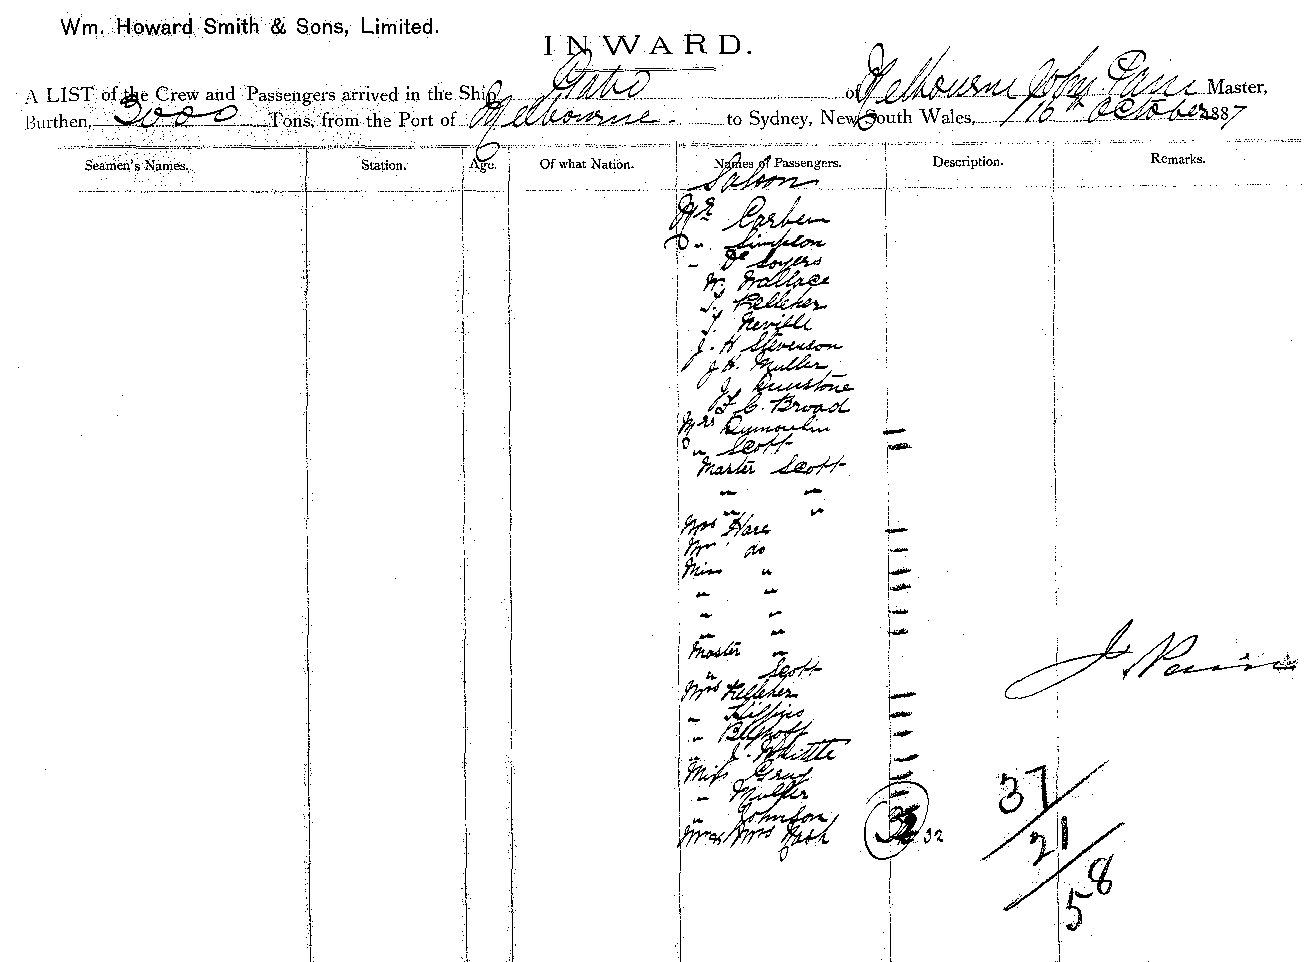 Wm. Howard Smith & Sons, Limited.
INWARD.
A LIST of the Crew and Passengers arrived in the Ship of Melbourne John Master,
Burthen, 3000 Tons, from the Port of Melbourne. to Sydney, New South Wales, 16th October 1887
Seamen's Names. Station. Age. Of what Nation. Names of Passengers. Description. Remarks.
Saloon
Mr
" Simpson
" De Soyers
W. Wallace
T. Kelleher
T. Neville
J. H. Stevenson
J H. Muller
J.
F C. Broad
Mrs Dumoulin
" Scott
Master Scott
" "
" "
Mrs Hare
Mr do
Miss "
" "
" "
" "
Master "
" Scott
Mrs Kelleher
" Higgins
"
" J. Whittle
Miss Gray
" Muller
" Johnson
Mr & Mrs Nash 32
J.
37
21
58